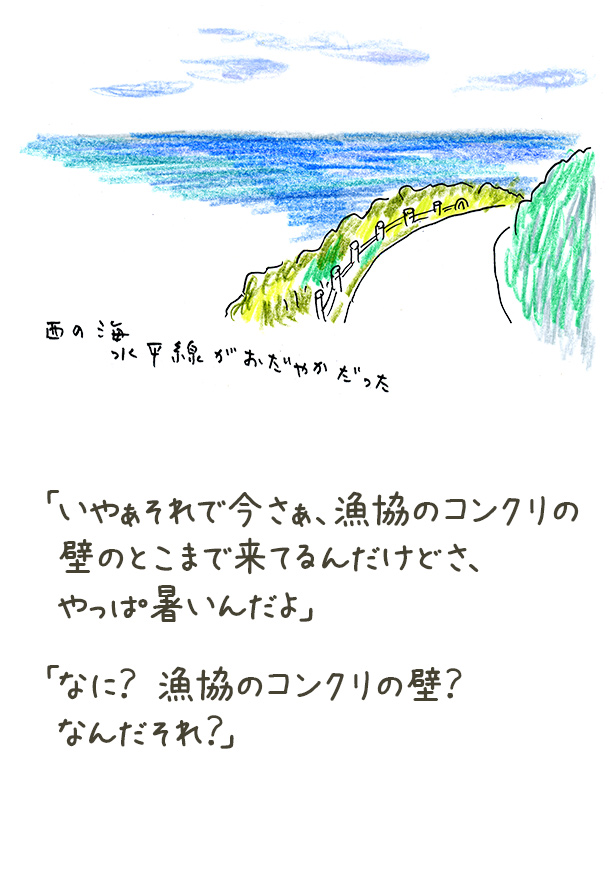 西の海
水平線がおだやかだった
「いやぁそれで今さぁ、漁協のコンクリの
壁のとこまで来てるんだけどさ、
やっぱ暑いんだよ」
「なに? 漁協のコンクリの壁?
なんだそれ?」